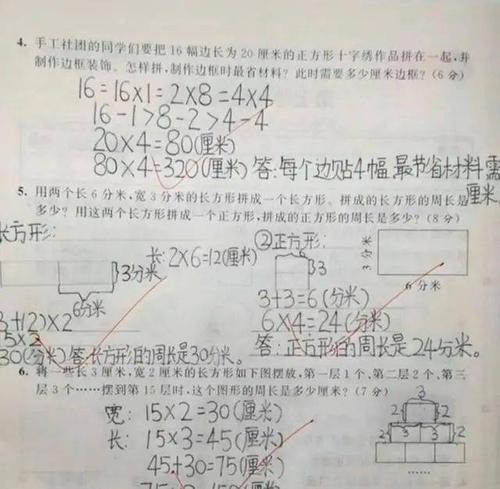 4. 手工社团的同学们要把 16 幅边长为 20 厘米的正方形十字绣作品拼在一起,并
制作边框装饰。怎样拼,制作边框时最省材料?此时需要多少厘米边框?(6 分)
16=16×1=2×8=4×4
16-1>8-2>4-4
20×4=80(厘米)
80×4=320(厘米) 答:每个边贴4幅 最节省材料需
厘米。
5. 用两个长 6 分米,宽 3 分米的长方形拼成一个长方形。拼成的长方形的周长是
多少?用这两个长方形拼成一个正方形,拼成的正方形的周长是多少?(8 分)
长方形:
长:2×6=12(厘米)
3分米
6分米
3+12)×2
15×2
30(分米)答:长方形的周长是30分米。
②正方形:
6
3
3 分米
6 分米
3+3=6(分米)
6×4=24(分米)
答:正方形的周长是24分米。
6. 将一些长 3 厘米,宽 2 厘米的长方形如下图摆放,第一层 1 个、第二层 2 个、第三
层 3 个……摆到第 15 层时,这个图形的周长是多少厘米?(7 分)
宽:15×2=30(厘米)
长:15×3=45(厘米)
45+30=75(厘米)
3
2 2
2 3 3 2
……